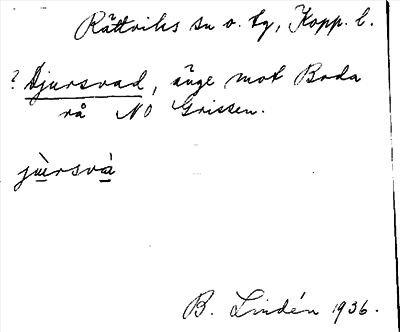 Rättviks sn o. tg, Kopp. l.
? Djursvad, änge mot Boda
rå NO Grissen.
jùrsvà
B. Lindén 1936.